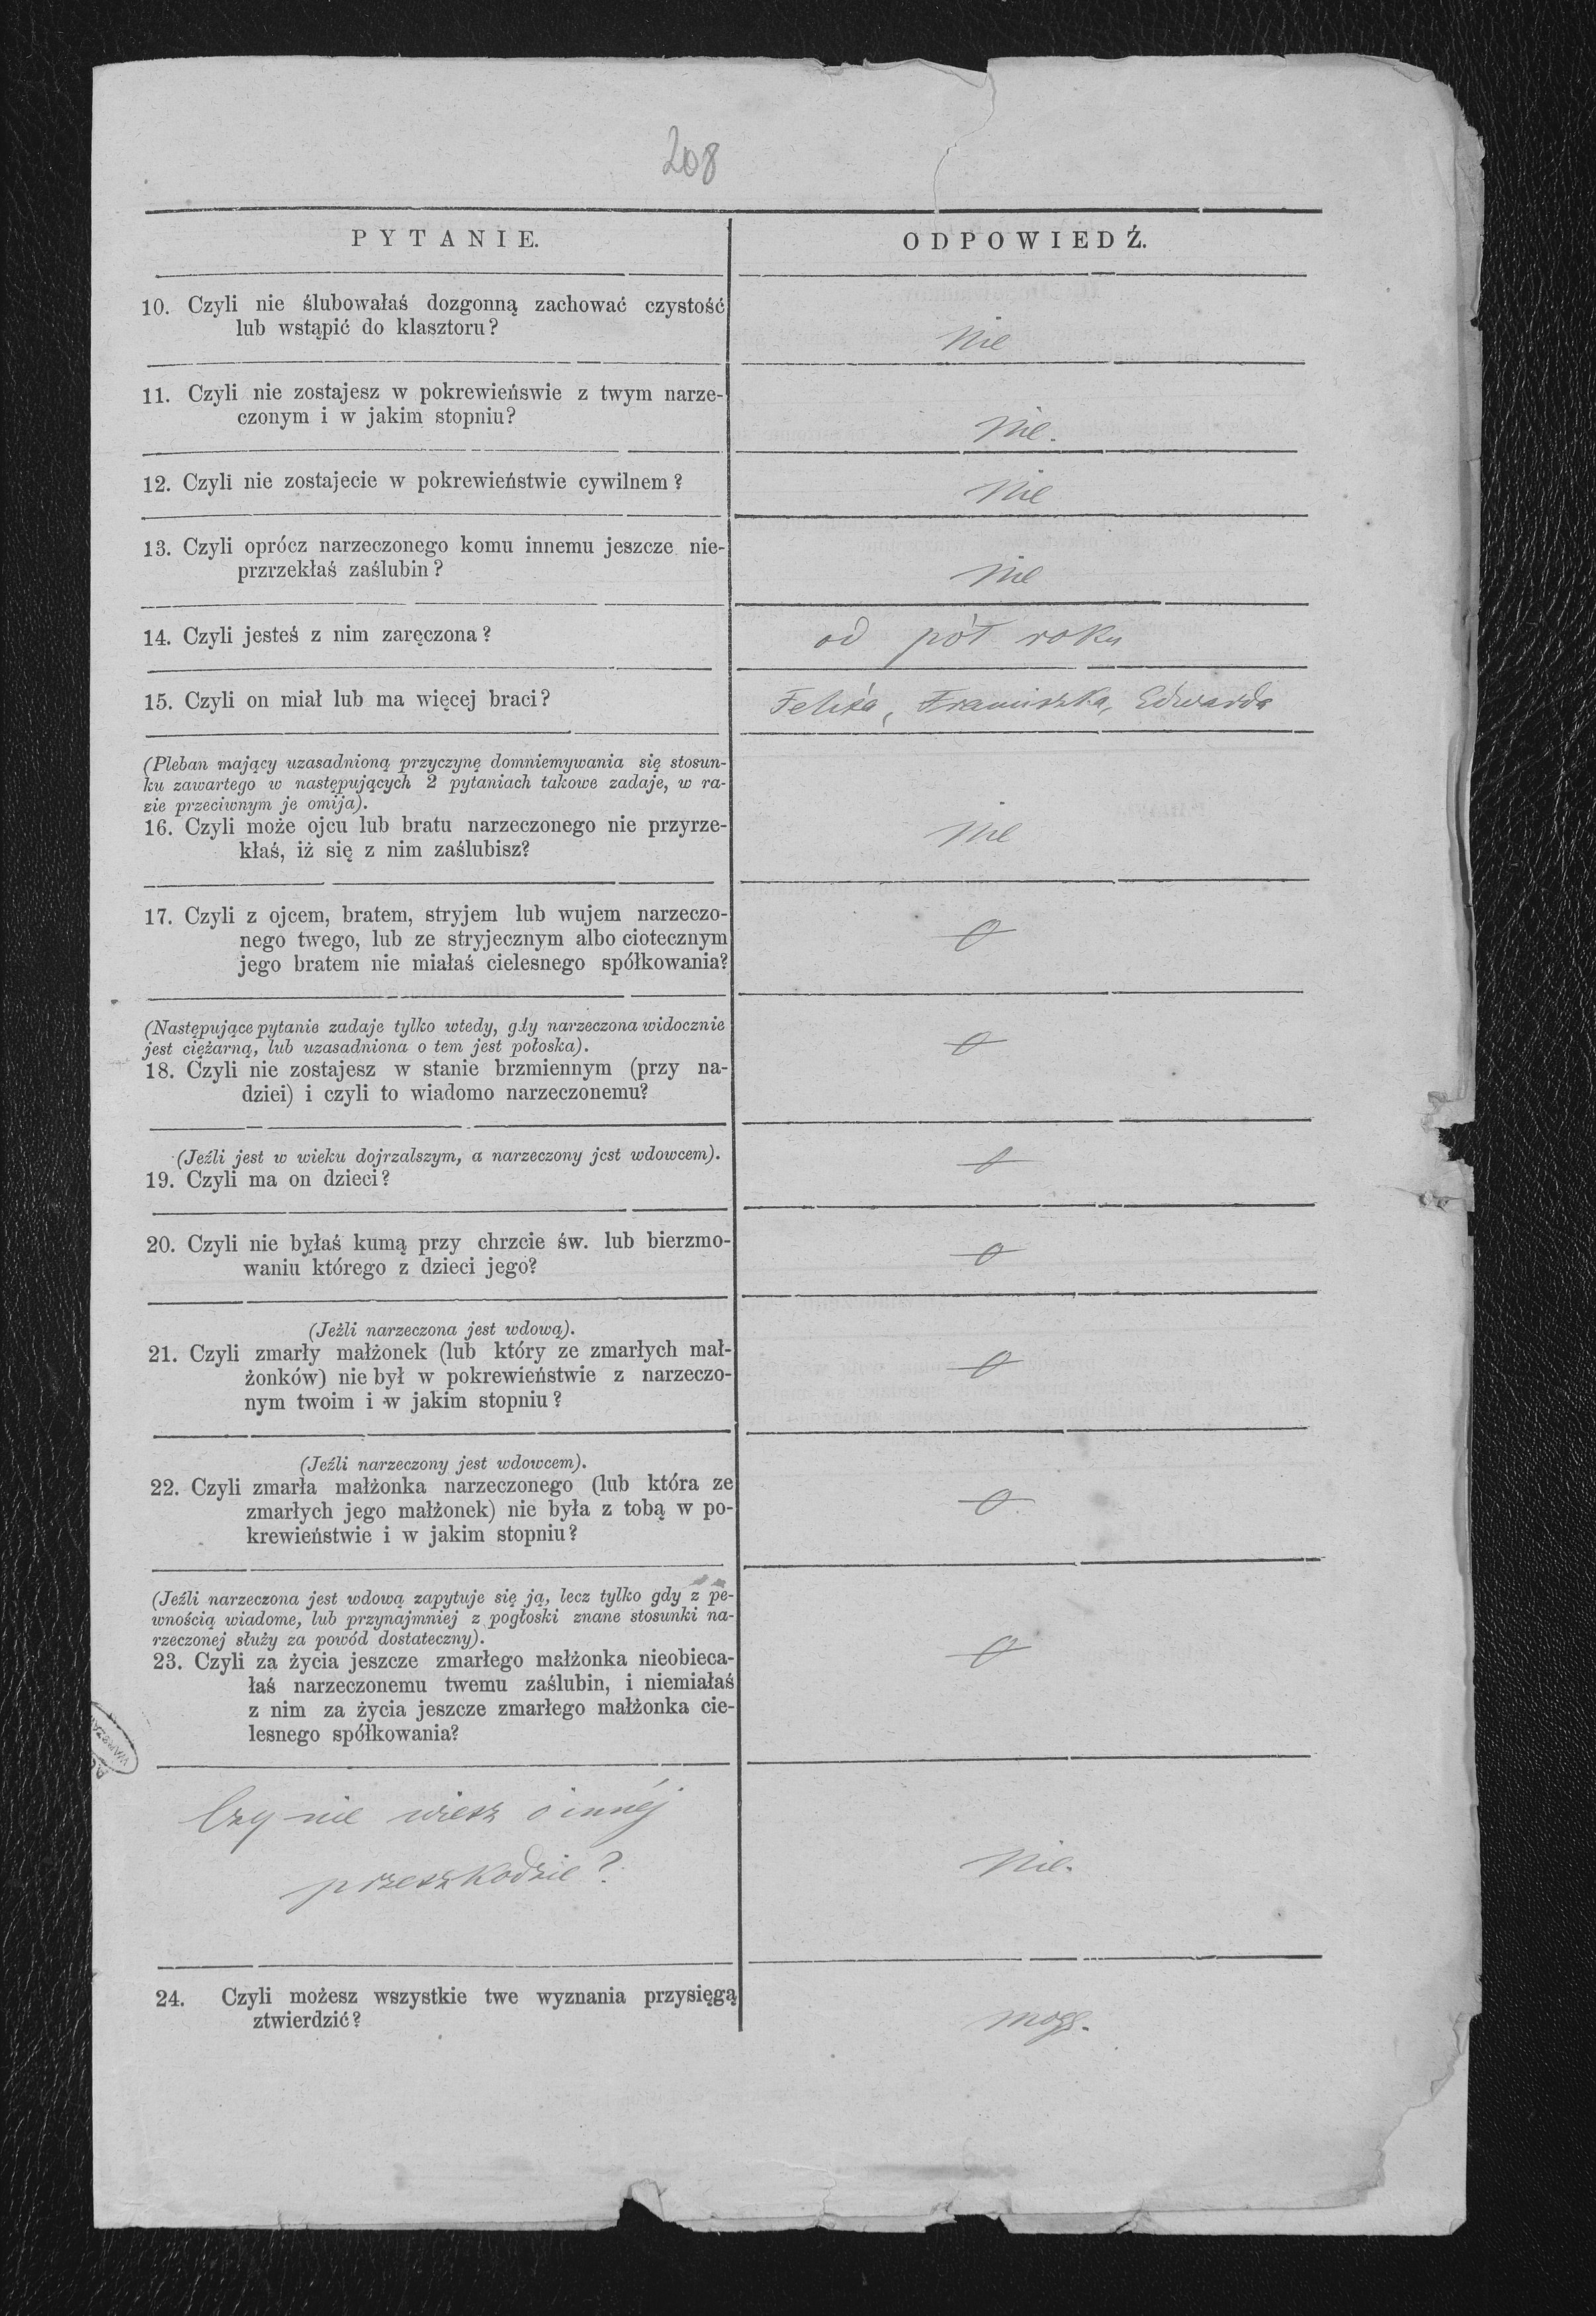 208
PYTANIE.
ODPOWIEDŹ.
10. Czyli nie ślubowałaś dozgonną zachować czystość
lub wstąpić do klasztoru?
Nie
11. Czyli nie zostajesz w pokrewieńswie z twym narze-
czonym i w jakim stopniu?
Nie.
12. Czyli nie zostajecie w pokrewieństwie cywilnem?
Nie
13. Czyli oprócz narzeczonego komu innemu jeszcze nie-
przrzekłaś zaślubin?
nie
14. Czyli jesteś z nim zaręczona?
od pół roku
15. Czyli on miał lub ma więcej braci?
Felixa, Franciszka, Edwarda
(Pleban mający uzasadnioną przyczynę domniemywania się stosun-
ku zawartego w następujących 2 pytaniach takowe zadaje, w ra-
zie przeciwnym je omija).
16. Czyli może ojcu lub bratu narzeczonego nie przyrze-
kłaś, iż się z nim zaślubisz?
nie
17. Czyli z ojcem, bratem, stryjem lub wujem narzeczo-
nego twego, lub ze stryjecznym albo ciotecznym
jego bratem nie miałaś cielesnego spółkowania?
0
(Następujące pytanie zadaje tylko wtedy, gdy narzeczona widocznie
jest ciężarną, lub uzasadniona o tem jest połoska).
18. Czyli nie zostajesz w stanie brzmiennym (przy na-
dziei) i czyli to wiadomo narzeczonemu?
0
(Jeźli jest w wieku dojrzalszym, a narzeczony jcst wdowcem).
19. Czyli ma on dzieci?
0
20. Czyli nie byłaś kumą przy chrzcie św. lub bierzmo-
waniu którego z dzieci jego?
0
(Jeżli narzeczona jest wdową).
21. Czyli zmarły małżonek (lub który ze zmarłych mał-
żonków) nie był w pokrewieństwie z narzeczo-
nym twoim i w jakim stopniu?
0
(Jeźli narzeczony jest wdowcem).
22. Czyli zmarła małżonka narzeczonego (lub która ze
zmarłych jego małżonek) nie była z tobą w po-
krewieństwie i w jakim stopniu?
0
(Jeźli narzeczona jest wdową zapytuje się ją, lecz tylko gdy z pe-
wnością wiadome, lub przynajmniej z pogłoski znane stosunki na-
rzeczonej służy za powód dostateczny).
23. Czyli za życia jeszcze zmarłego małżonka nieobieca-
łaś narzeczonemu twemu zaślubin, i niemiałaś
z nim za życia jeszcze zmarłego małżonka cie-
lesnego spółkowania?
0
Czy nie wiesz o innéj
przeszkodzie?
Nie.
24. Czyli możesz wszystkie twe wyznania przysięgą
ztwierdzić?
mogę.